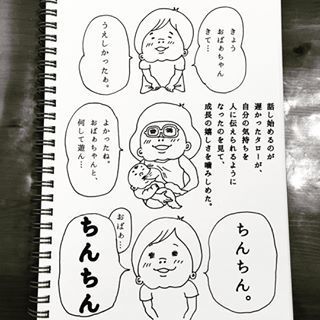 きょう
おばぁちゃん
きて…
うえしかったぁ。
話し始めるのが
遅かったタローが、
自分の気持ちを
人に伝えられるように
なったのを見て、
成長の嬉しさを噛みしめた。
よかったね。
おばぁちゃんと、
何して遊ん…
ちんちん。
おばぁ…
ちんちん